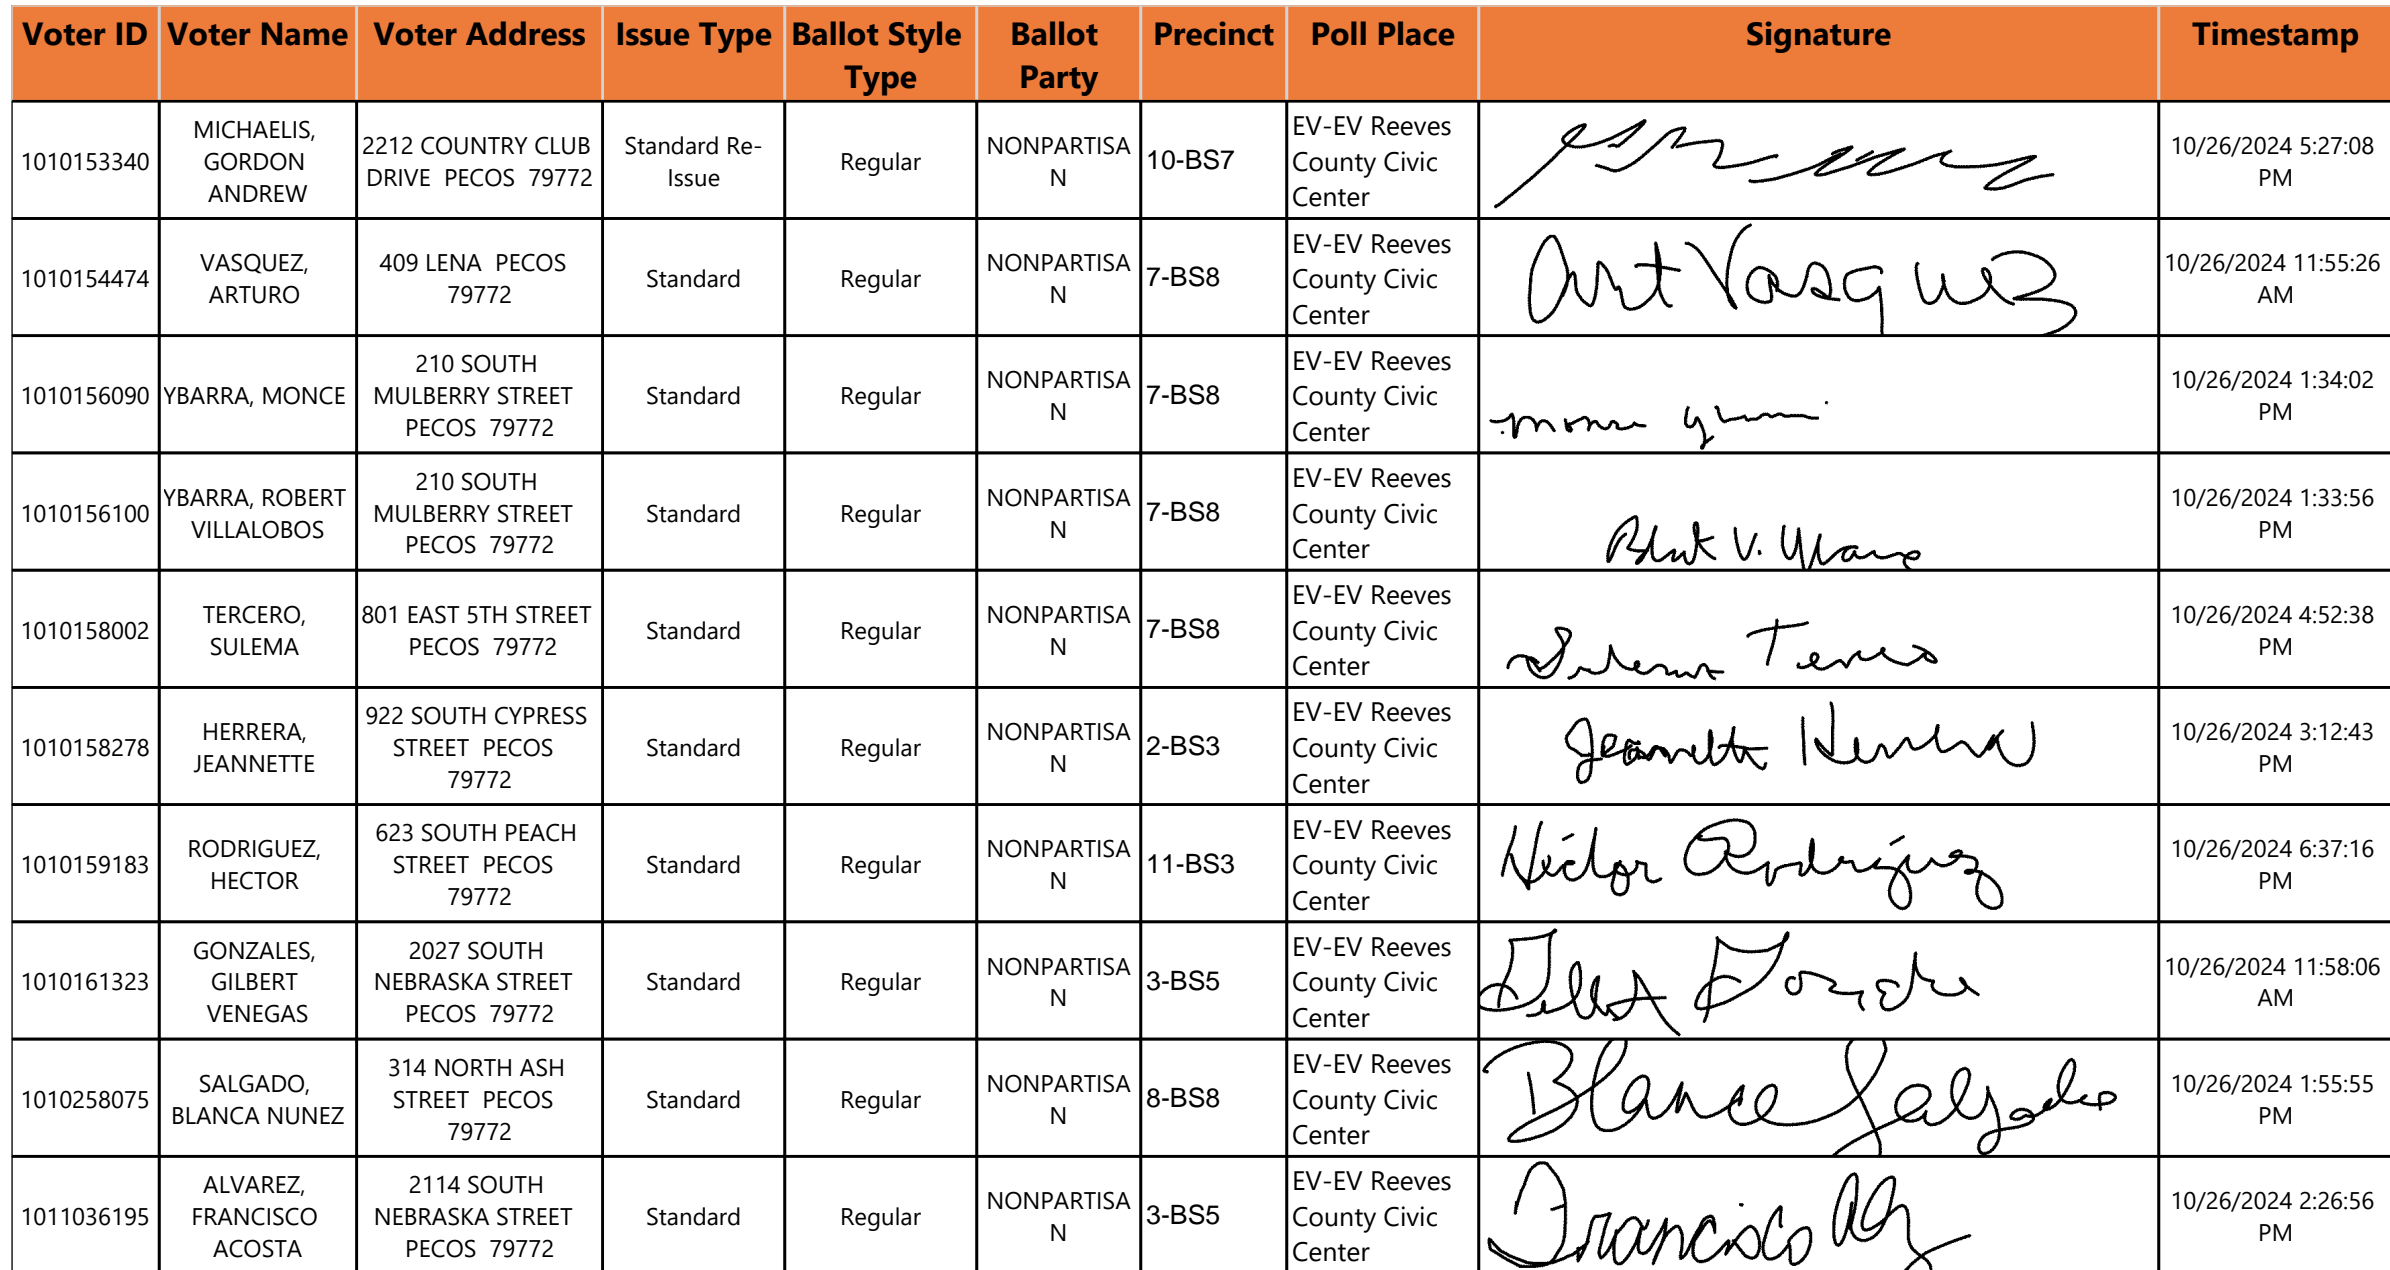 Voter ID Voter Name Voter Address Issue Type Ballot Style Type Ballot Party Precinct Poll Place Signature Timestamp
1010153340 MICHAELIS, GORDON ANDREW 2212 COUNTRY CLUB DRIVE PECOS 79772 Standard Re-Issue Regular NONPARTISAN 10-BS7 EV-EV Reeves County Civic Center 10/26/2024 5:27:08 PM
1010154474 VASQUEZ, ARTURO 409 LENA PECOS 79772 Standard Regular NONPARTISAN 7-BS8 EV-EV Reeves County Civic Center Art Vasquez 10/26/2024 11:55:26 AM
1010156090 YBARRA, MONCE 210 SOUTH MULBERRY STREET PECOS 79772 Standard Regular NONPARTISAN 7-BS8 EV-EV Reeves County Civic Center 10/26/2024 1:34:02 PM
1010156100 YBARRA, ROBERT VILLALOBOS 210 SOUTH MULBERRY STREET PECOS 79772 Standard Regular NONPARTISAN 7-BS8 EV-EV Reeves County Civic Center V. 10/26/2024 1:33:56 PM
1010158002 TERCERO, SULEMA 801 EAST 5TH STREET PECOS 79772 Standard Regular NONPARTISAN 7-BS8 EV-EV Reeves County Civic Center 10/26/2024 4:52:38 PM
1010158278 HERRERA, JEANNETTE 922 SOUTH CYPRESS STREET PECOS 79772 Standard Regular NONPARTISAN 2-BS3 EV-EV Reeves County Civic Center Jeannette Herrera 10/26/2024 3:12:43 PM
1010159183 RODRIGUEZ, HECTOR 623 SOUTH PEACH STREET PECOS 79772 Standard Regular NONPARTISAN 11-BS3 EV-EV Reeves County Civic Center Hector Rodriguez 10/26/2024 6:37:16 PM
1010161323 GONZALES, GILBERT VENEGAS 2027 SOUTH NEBRASKA STREET PECOS 79772 Standard Regular NONPARTISAN 3-BS5 EV-EV Reeves County Civic Center 10/26/2024 11:58:06 AM
1010258075 SALGADO, BLANCA NUNEZ 314 NORTH ASH STREET PECOS 79772 Standard Regular NONPARTISAN 8-BS8 EV-EV Reeves County Civic Center Blanca Salgado 10/26/2024 1:55:55 PM
1011036195 ALVAREZ, FRANCISCO ACOSTA 2114 SOUTH NEBRASKA STREET PECOS 79772 Standard Regular NONPARTISAN 3-BS5 EV-EV Reeves County Civic Center Francisco 10/26/2024 2:26:56 PM